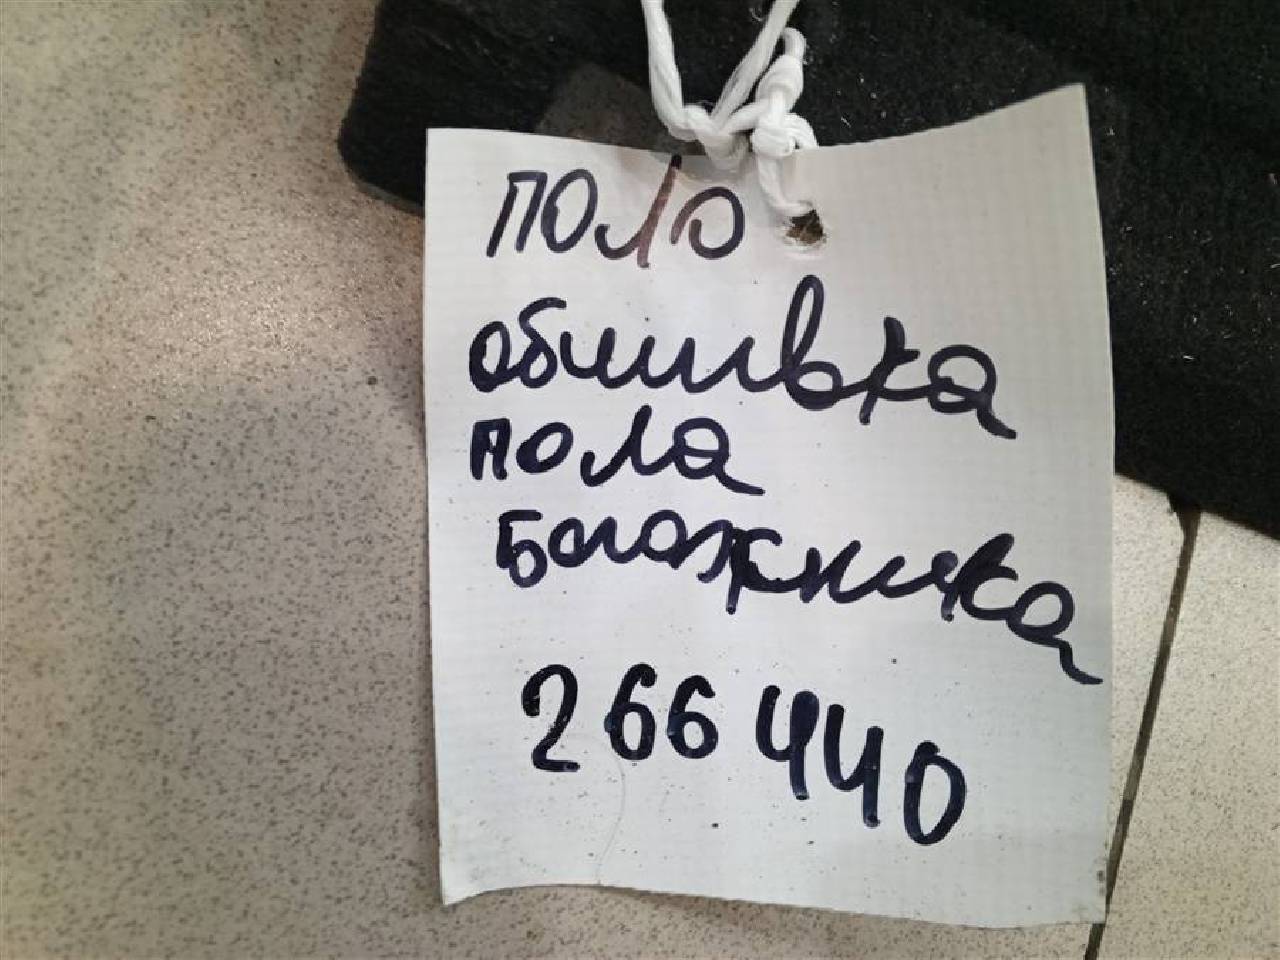 ПОЛО
обшивка
пола
багажника
266440